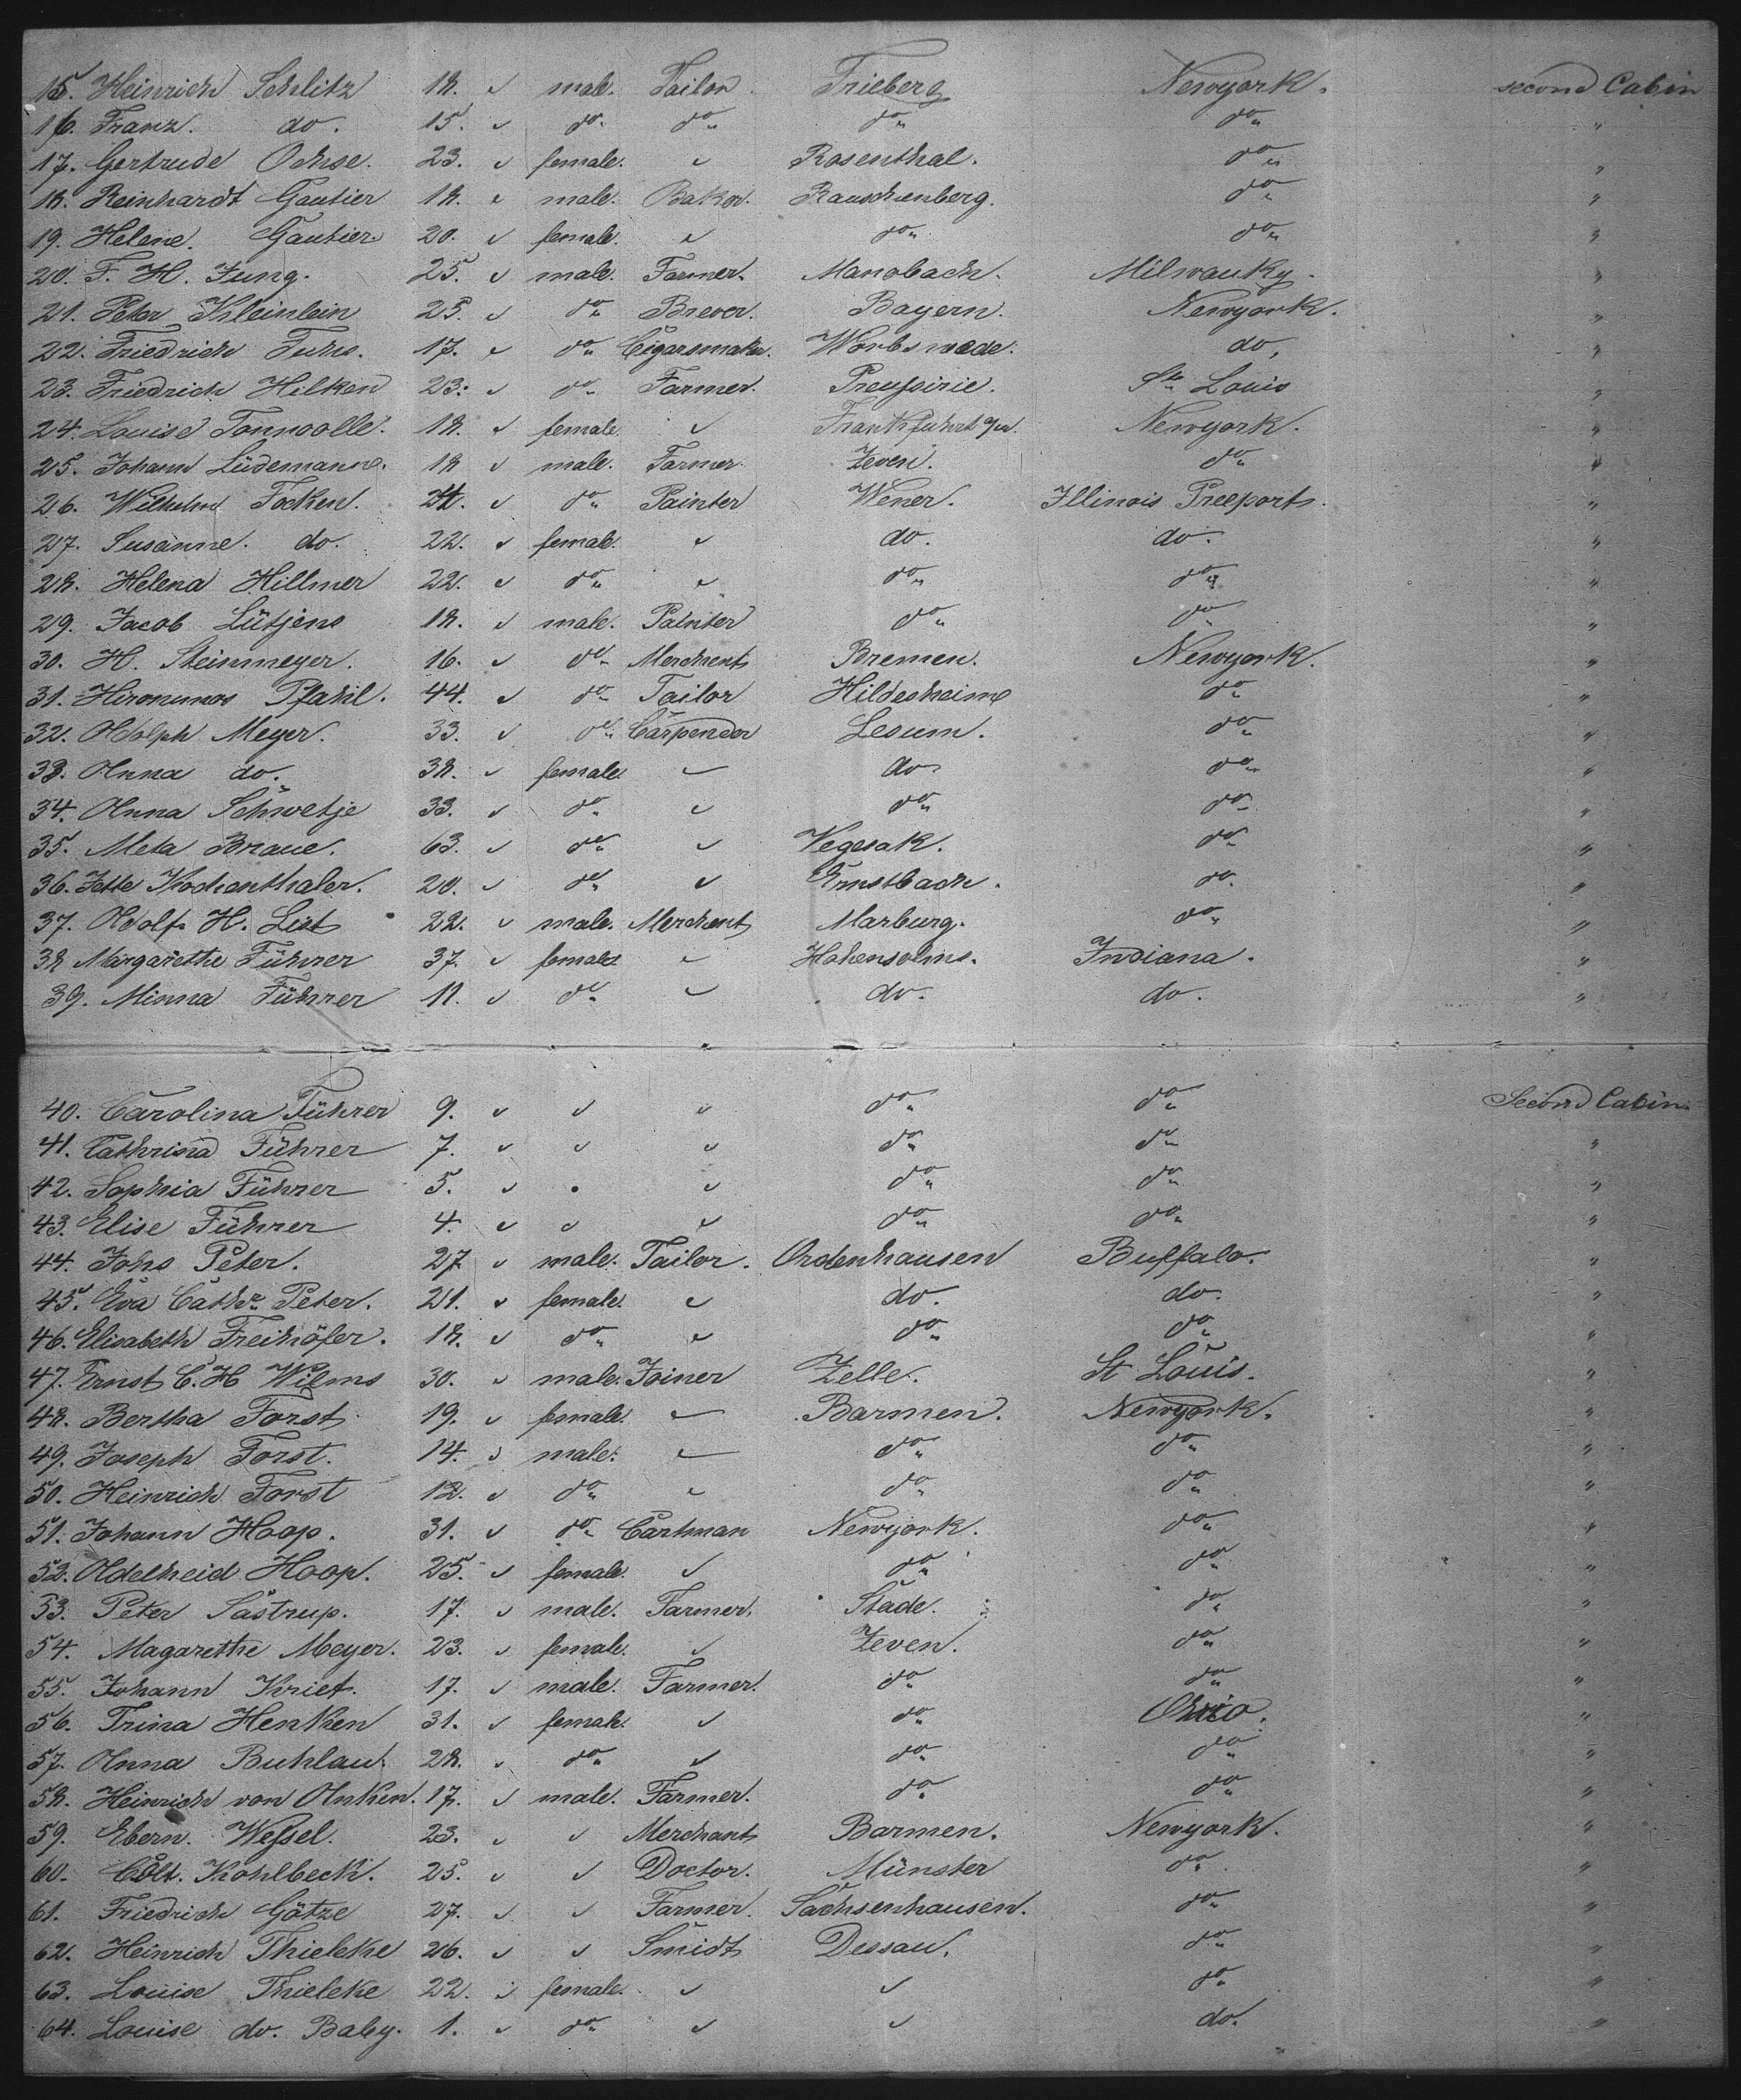 15. Heinrich Schlitz 18. " male. Tailor Frieberg Newyork. second Cabin
16. Franz. do. 15. " do. do " do " do " "
17. Gertrude Ochse. 23. " female. " Rosenthal. do " "
18. Reinhardt Gautier 18. " male. Baker. Rauschenberg. do " "
19. Helene. Gautier. 20. " female. " do " do " "
20. F. H. Jung. 25. " male. Farmer. Manobach. Milwauky. "
21. Peter Kleinlein 25. " do " Brever. Bayern. Newyork. "
22. Friedrich Fuhs. 17. " do " Cigarsmaker. Worbswede. do, "
23. Friedrich Hilken 23. " do " Farmer. Preussirie. St. Louis "
24. Louise Tonnoolle. 18. " female. " Frankfuhrt a/m. Newyork. "
25. Johann Lüdemann. 18 " male. Farmer. Zeven. do " "
26. Wilhelm Focken. 24. " do " Painter Wener. Illinois Preeport. "
27. Susanne. do. 22. " female. " do. do. "
28. Helena Hillmer 22. " do " " do " do " "
29. Jacob Lütjens 18. " male. Painter do " do " "
30. H. Steinmeyer. 16. " do " Merchent Bremen. Newyork. "
31. Hironumos Pfahl. 44. " do " Tailor Hildesheim do " "
32. Adolph Meyer. 33. " do " Carpender Lesum. do " "
33. Anna do. 38. " female. " do. do " "
34. Anna Schwetje 33. " do " " do " do " "
35. Meta Braue. 63. " do " " Vegesak. do " "
36. Jette Kochenthaler. 20. " do " " Ernstbach. do. "
37. Adolf. H. List 22. " male. Merchent Marburg. do " "
38 Margarethe Führer 37. " female. " Hohensolms. Indiana. "
39. Minna Führer 11. " do " " do. do. "
40. Carolina Führer 9. " " " do " do " Second Cabin
41. Cathrina Führer 7. " " " do " do " "
42. Sophia Führer 5. " " " do " do " "
43. Elise Führer 4. " " " do " do " "
44. Johs Peter. 27 " male. Tailor. Ordenhausen Buffalo. "
45. Eva Cathr. Peter. 21. " female. " do. do. "
46. Elisabeth Freihöfer. 18. " do " " do " do " "
47. Ernst C. H Wilms 30. " male. Joiner Zelle. St. Louis. "
48. Bertha Forst 19. " female. " Barmen. Newyork. "
49. Joseph Forst. 14. " male. " do " do " "
50. Heinrich Forst 12. " do " " do " do " "
51. Johann Hoop. 31. " do " Cartman Newyork. do " "
52. Adelheid Hoop. 25. " female. " do " do " "
53. Peter Sastrup. 17. " male. Farmer. Stade. do " "
54. Magarethe Meyer. 23. " female. " Zeven. do " "
55. Johann Kriet. 17. " male. Farmer. do " do " "
56. Trina Henken 31. " female. " do " Ohio. "
57. Anna Buhlau. 28. " do " " do " do " "
58. Heinrich von Anken. 17. " male. Farmer. do " do " "
59. Ebern. Wessel. 23. " " Merchant Barmen. Newyork. "
60. Kohlbeck. 25. " " Doctor. Münster do " "
61. Friedrich Götze 27. " " Farmer. Sachsenhausen. do " "
62. Heinrich Thieleke 26. " " Smidt Dessau. do " "
63. Louise Thieleke 22. " female. " " do " "
64. Louise do. Baby. 1. " do " " " do. "